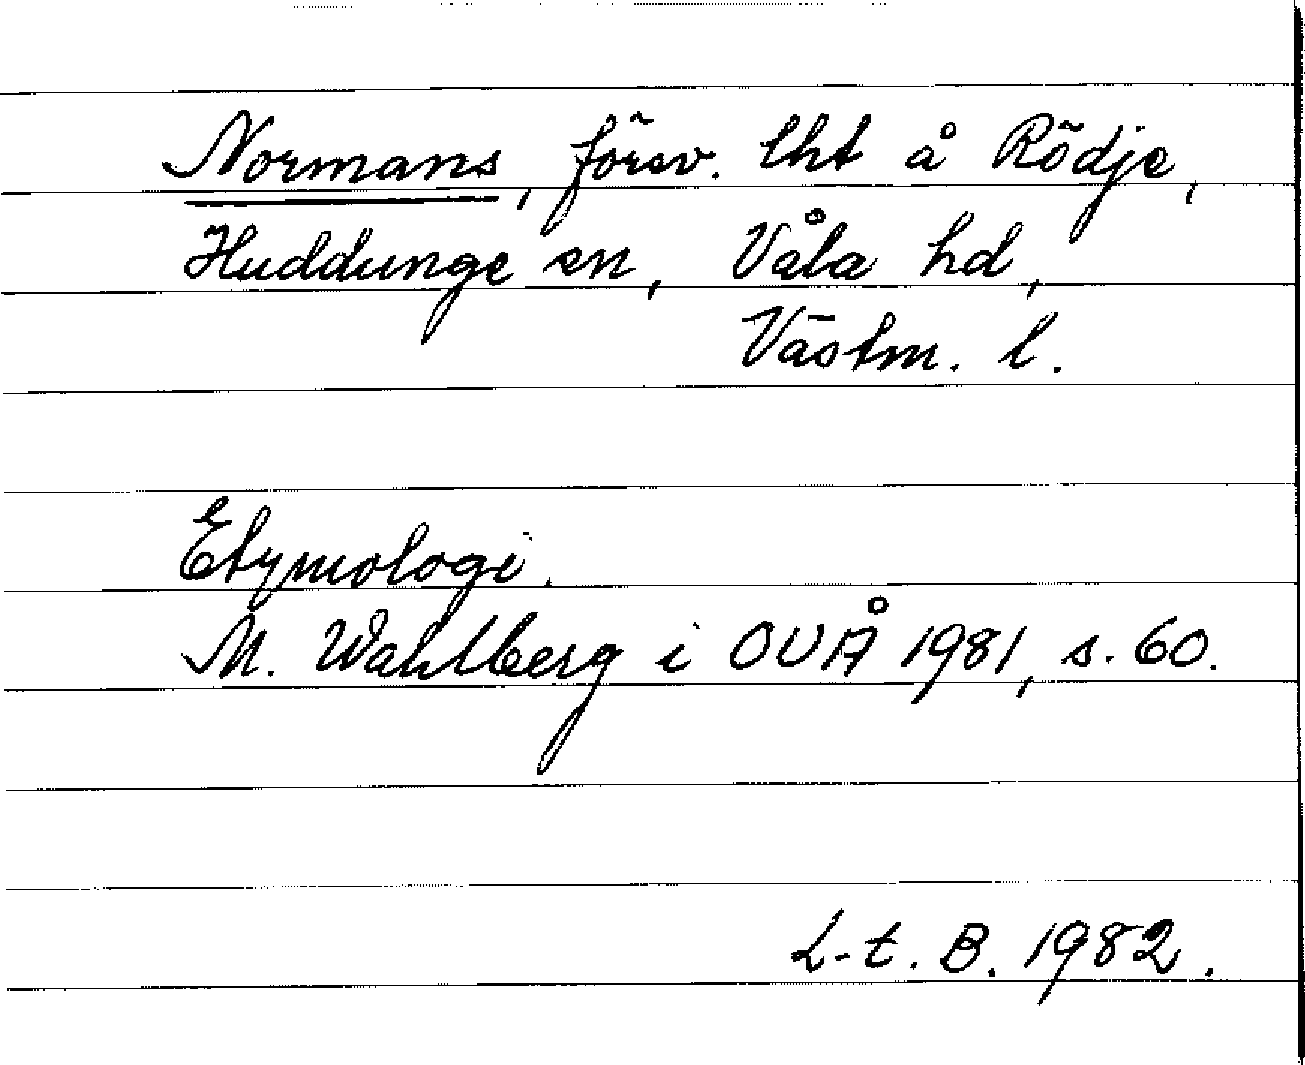 Normans, försv. lht å Rödje,
Huddunge sn, Våla hd,
Västm. l.
Etymologi.
M. Wahlberg i OUÅ 1981, s. 60.
L-t. B. 1982.